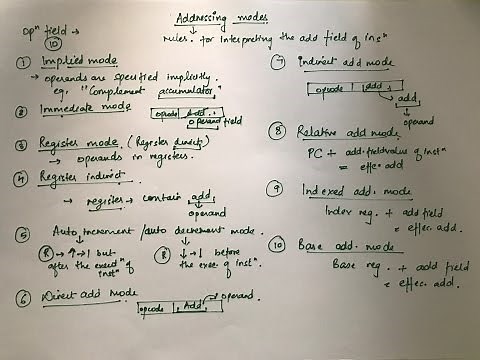 Addressing modes
opn field →
10
rules for interpreting the add field of instn
① Implied mode
→ operands are specified implicitly.
eg. "Complement accumulator"
② Immediate mode
opcode Add.
operand field
③ Register mode (Register direct)
→ operands in registers.
④ Register indirect.
→ register → contain add.
operand
⑤ Auto increment / auto decrement mode.
R → ↑ → 1 but
after the execn of
instn
R ↓ → 1 before
the exec. of instn.
⑥ Direct add mode
opcode Add → operand.
⑦ Indirect add mode
opcode Add.
add.
operand
⑧ Relative add mode
PC + add. field value of instn
= effec. add
⑨ Indexed add. mode
Index reg. + add field
= effec. add.
⑩ Base add. mode
Base reg. + add field
= effec. add.